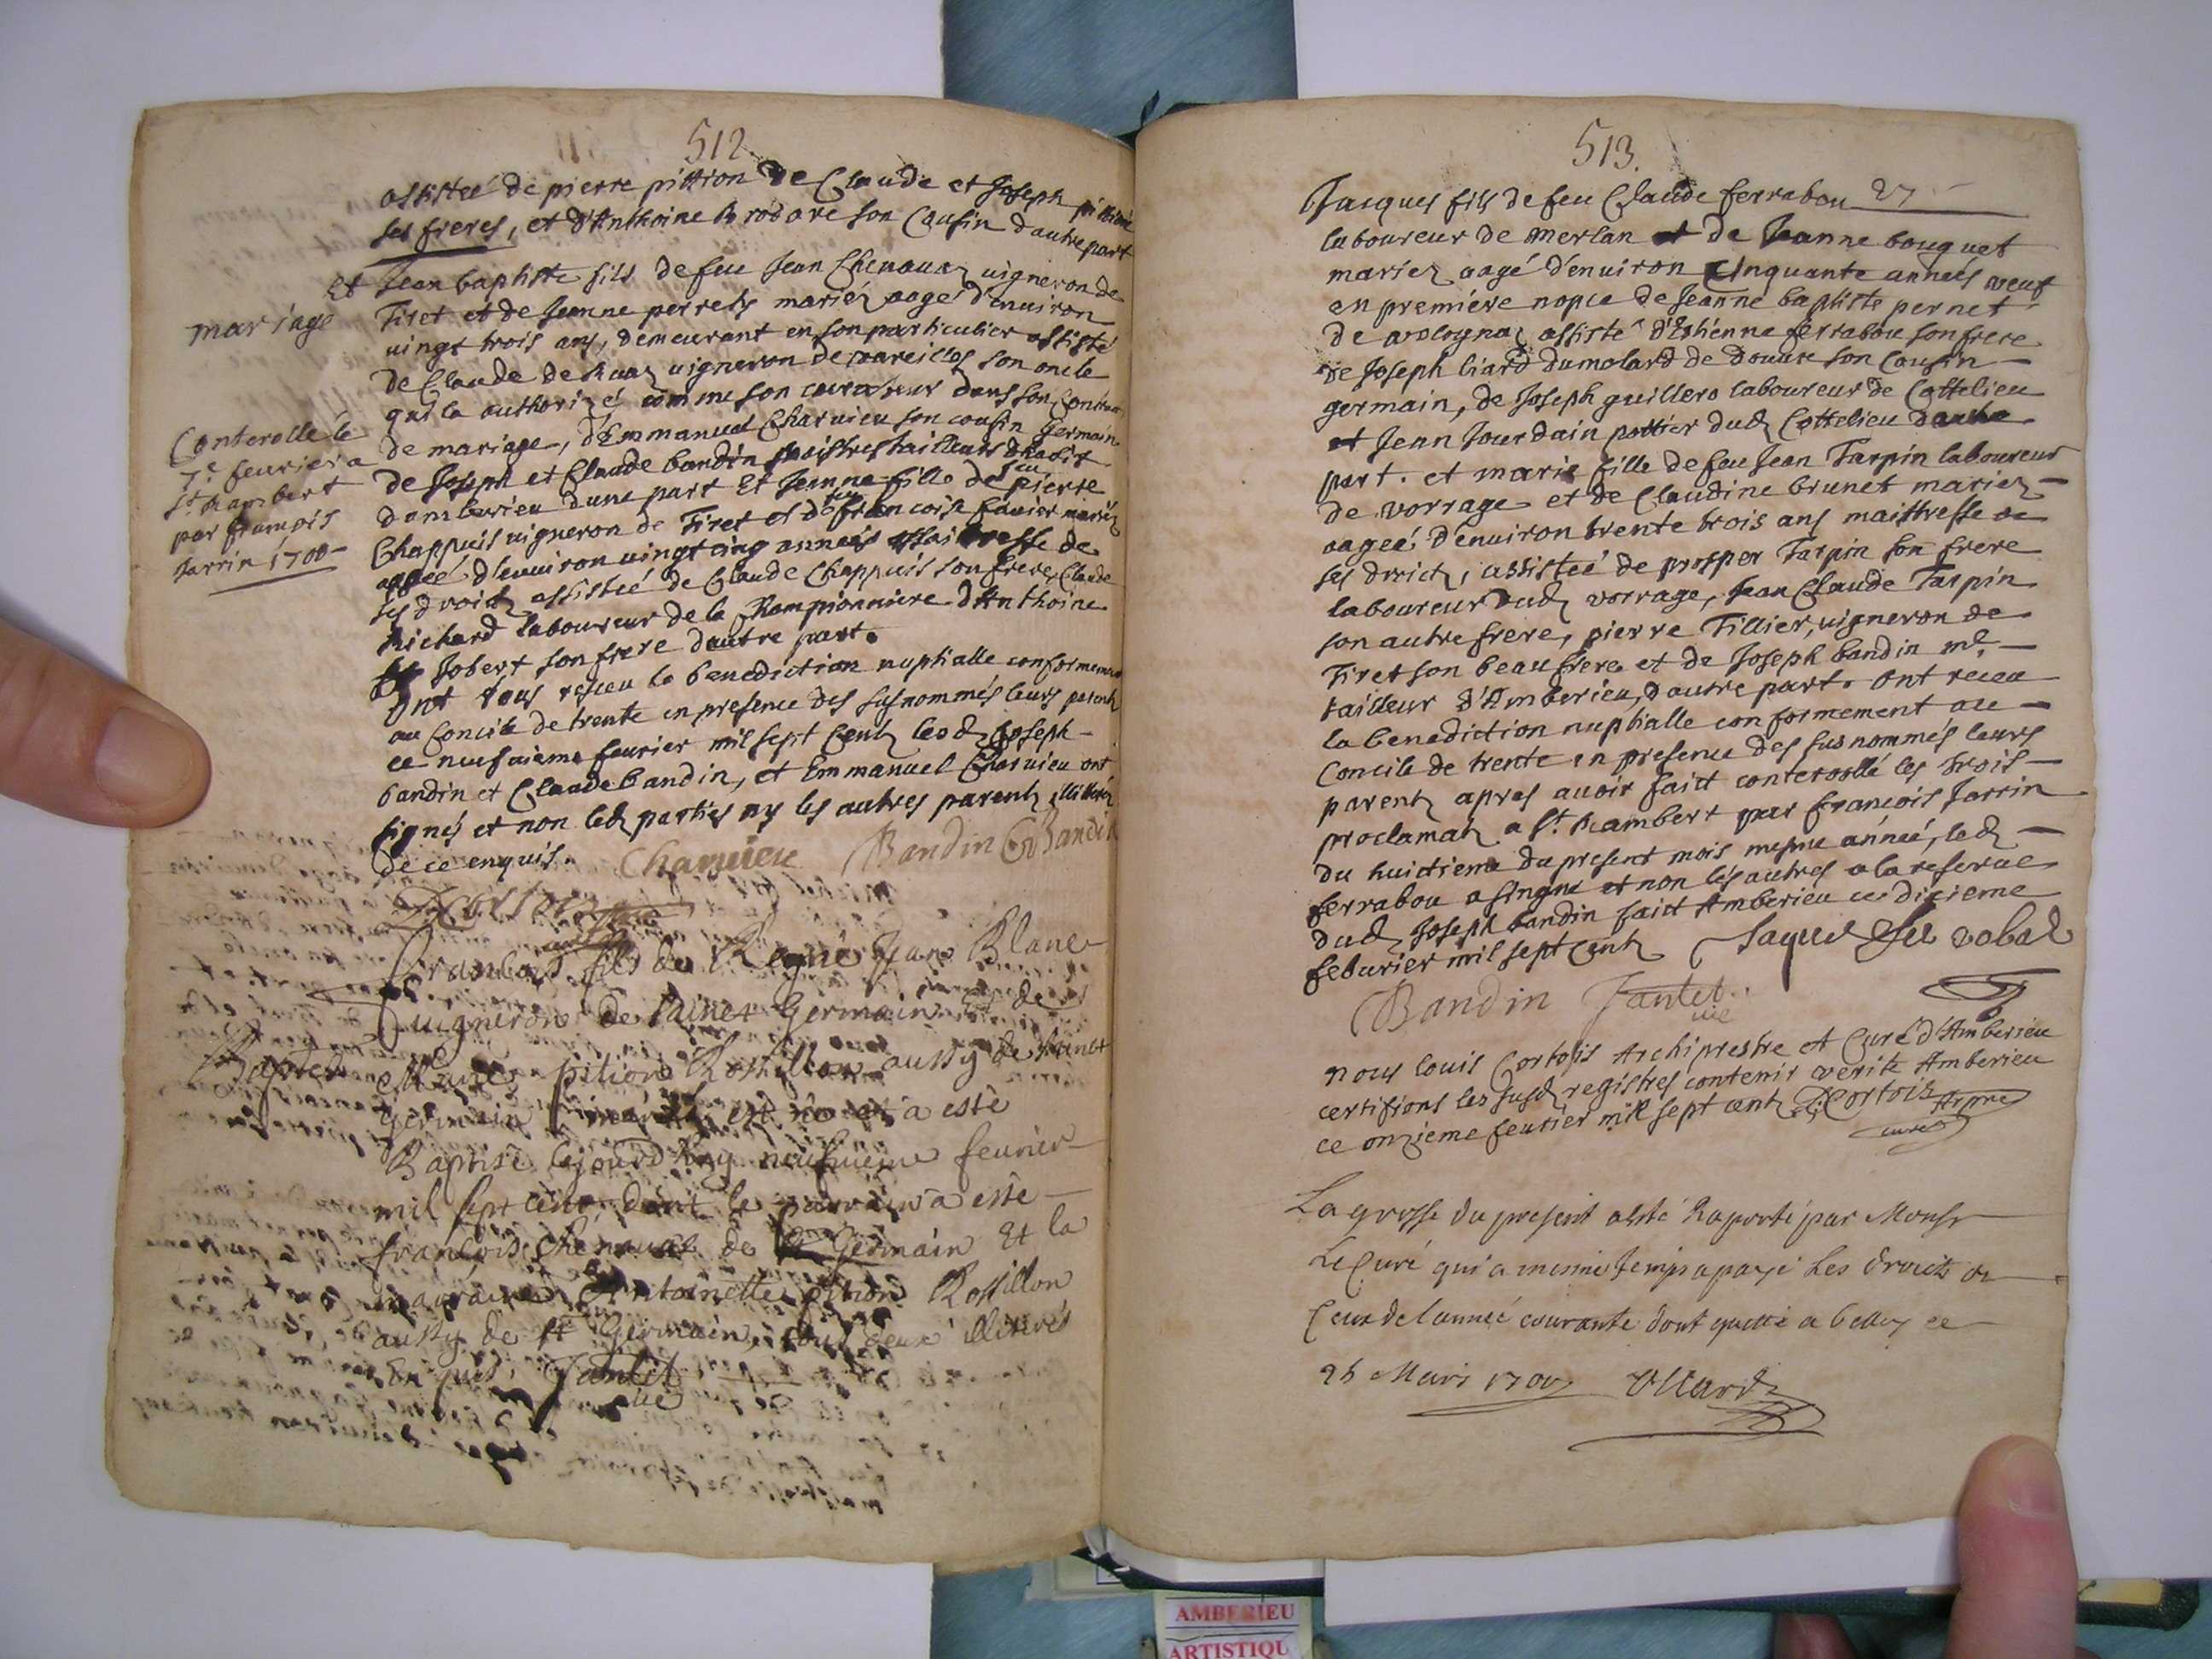 512
assisteé de pierre pittion de Claude et Joseph pittion
ses freres, et d'Anthoine Brodore son Cousin dautre part
Et Jean baptiste fils de feu Jean Chenauaz uigneron de
mariage
Tiret et de Jeanne perret mariéz aagé d'enuiron
uingt trois ans, demeurant en son particulier assisté
de Claude de Ruaz uigneron de vareilles son oncle
qui la authorizé comme son curateur dans son Contract
de mariage, d'Emmanuel Charuieu son cousin germain
Conterollé le
7e feurier a
St Rambert
par françois
Jarrin 1700
de Joseph et Claude bandin maistres tailleurs dhabit
damberieu dune part Et Jeanne fille de feu pierre
Chappuis uigneron de Tiret et de feu francoise fauier mariéz
aageé d'enuiron uingt cinq années maitresse de
ses droictz assisteé de Claude Chappuis son frere, Claude
Richard laboureur de la Rampionniere d'Anthoine
Jobert son frere dautre part.
Ont tous resceu la benediction nuptialle conformement
au Concile de trente en presence des susnommés leurs parentz
ce neufuieme feurier mil sept Centz lesdz Joseph
bandin et Claude bandin, et Emmanuel Charuieu ont
signés et non lesdz parties ny les autres parentz illiterés
de ce enquis. Charuieu Bandin C Bandin
Cortois
curé
francois fils de René Jean Blanc
uigneron de Sainct Germain et de
Baptesme
Marie pition Rossillon aussy de Sainct
Germain mariéz est né et a esté
Baptisé ce jourdhuy neufuieme feurier
mil sept cent, dont le parrain a esté
françois Chenauaz de St Germain Et la
marraine Antoinette pition Rossillon
aussy de St Germain, tous deux illiterés
Enquis. Tantet
vic
513.
Jacques fils de feu Claude ferrabou 27
laboureur de merlan et de Jeanne bouquet
mariez aagé d'enuiron Cinquante années veuf
en premiére nopce de Jeanne baptiste pernet
de vologna, assisté d'Estienne ferrabou son frere
de Joseph liard dumolard de douure son Cousin
germain, de Joseph guillero laboureur de Cottelieu
et Jean Jourdain pottier dudz Cottelieu dautre
part. et marie fille de feu Jean Tarpin laboureur
de vorrage et de Claudine brunet mariez
aageé d'enuiron trente trois ans maittresse de
ses droictz, assisteé de prosper Tarpin son frere
laboureur dudz vorrage, Jean Claude Tarpin
son autre frere, pierre Tillier, uigneron de
Tiret son beaufrere et de Joseph bandin me
tailleur d'Amberieu, dautre part. Ont receu
la benediction nuptialle conformement au
Concile de trente en presence des susnommés leurs
parentz apres auoir faict conteroollé les trois
proclamatz a St. Rambert par francois Jarrin
du huictieme du present mois mesme année, ledz
ferrabou a singné et non les autres a la reserue
dudz Joseph bandin faict Amberieu ce dixieme
feburier mil sept Centz
Bandin Tantet
vic
nous louis Cortois Archiprestre et Curé d'Amberieu
certifions les susdz registres contenir verité Amberieu
ce onzieme feurier mil sept centz Cortois Arpre
curé
La grosse du present a esté Raporté par Monsr
Le Curé qui a mesme temps a payé Les droicts de
Ceux de l'anneé courante dont quitte a belley ce
26 Mars 1700
AMBERIEU
ARTISTIQU